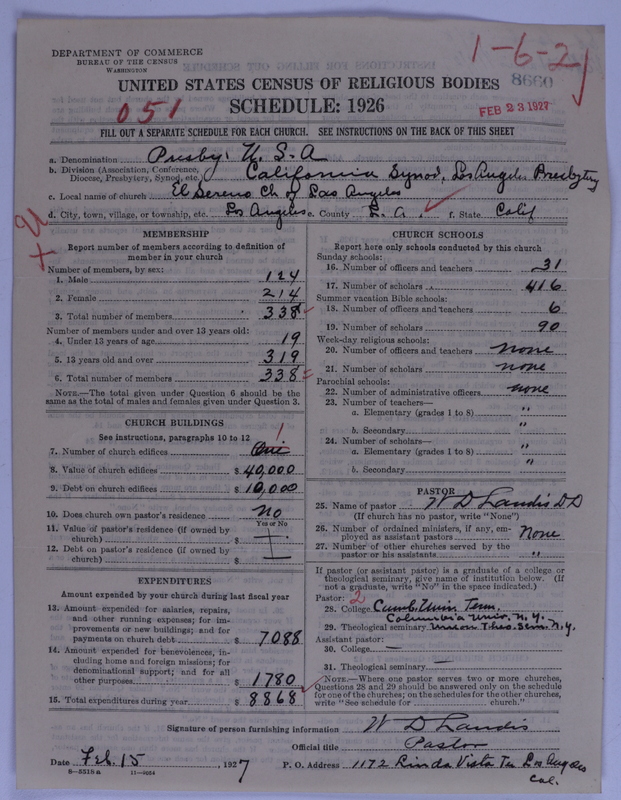 DEPARTMENT OF COMMERCE
BUREAU OF THE CENSUS
WASHINGTON
1-6-2
8660
UNITED STATES CENSUS OF RELIGIOUS BODIES
051
SCHEDULE: 1926
FEB 23 1927
FILL OUT A SEPARATE SCHEDULE FOR EACH CHURCH. SEE INSTRUCTIONS ON THE BACK OF THIS SHEET
a. Denomination Presby. U.S.A
b. Division (Association, Conference, Diocese, Presbytery, Synod, etc.) California Synod, Los Angeles Presbytery
c. Local name of church El Sereno Ch of Los Angeles
d. City, town, village, or township, etc. Los Angeles e. County L.A. f. State Calif
MEMBERSHIP
Report number of members according to definition of
member in your church
Number of members, by sex:
1. Male 124
2. Female 214
3. Total number of members 338
Number of members under and over 13 years old:
4. Under 13 years of age 19
5. 13 years old and over 319
6. Total number of members 338
NOTE.—The total given under Question 6 should be
same as the total of males and females given under Question 3.
CHURCH BUILDINGS
See instructions, paragraphs 10 to 12
7. Number of church edifices One 1
8. Value of church edifices $ 40,000
9. Debt on church edifices $ 10,000
10. Does church own pastor's residence No
Yes or No
11. Value of pastor's residence (if owned by
church) $
12. Debt on pastor's residence (if owned by
church) $
EXPENDITURES
Amount expended by your church during last fiscal year
13. Amount expended for salaries, repairs,
and other running expenses; for im-
provements or new buildings; and for
payments on church debt $ 7088
14. Amount expended for benevolences, in-
cluding home and foreign missions; for
denominational support; and for all
other purposes $ 1780
15. Total expenditures during year $ 8868
CHURCH SCHOOLS
Report here only schools conducted by this church
Sunday schools:
16. Number of officers and teachers 31
17. Number of scholars 416
Summer vacation Bible schools:
18. Number of officers and teachers 6
19. Number of scholars 90
Week-day religious schools:
20. Number of officers and teachers none
21. Number of scholars none
Parochial schools:
22. Number of administrative officers none
23. Number of teachers—
a. Elementary (grades 1 to 8) "
b. Secondary "
24. Number of scholars—
a. Elementary (grades 1 to 8) "
b. Secondary "
PASTOR
25. Name of pastor W D Landis DD
(If church has no pastor, write "None")
26. Number of ordained ministers, if any, em-
ployed as assistant pastors None
27. Number of other churches served by the
pastor or his assistants "
If pastor (or assistant pastor) is a graduate of a college or
theological seminary, give name of institution below. (If
not a graduate, write "No" in the space indicated.)
Pastor: 2
28. College Cumb. Univ Tenn.
Columbia Univ. N.Y.
29. Theological seminary Union Theo. Sem. N.Y.
Assistant pastor:
30. College —
31. Theological seminary —
NOTE.—Where one pastor serves two or more churches,
Questions 28 and 29 should be answered only on the schedule
for one of the churches; on the schedules for the other churches,
write "See schedule for church."
Signature of person furnishing information W D Landis
Official title Pastor
Date Feb. 15, 1927 P. O. Address 1172 Linda Vista Ter Los Angeles
Cal.
8—5518 a 11—9054